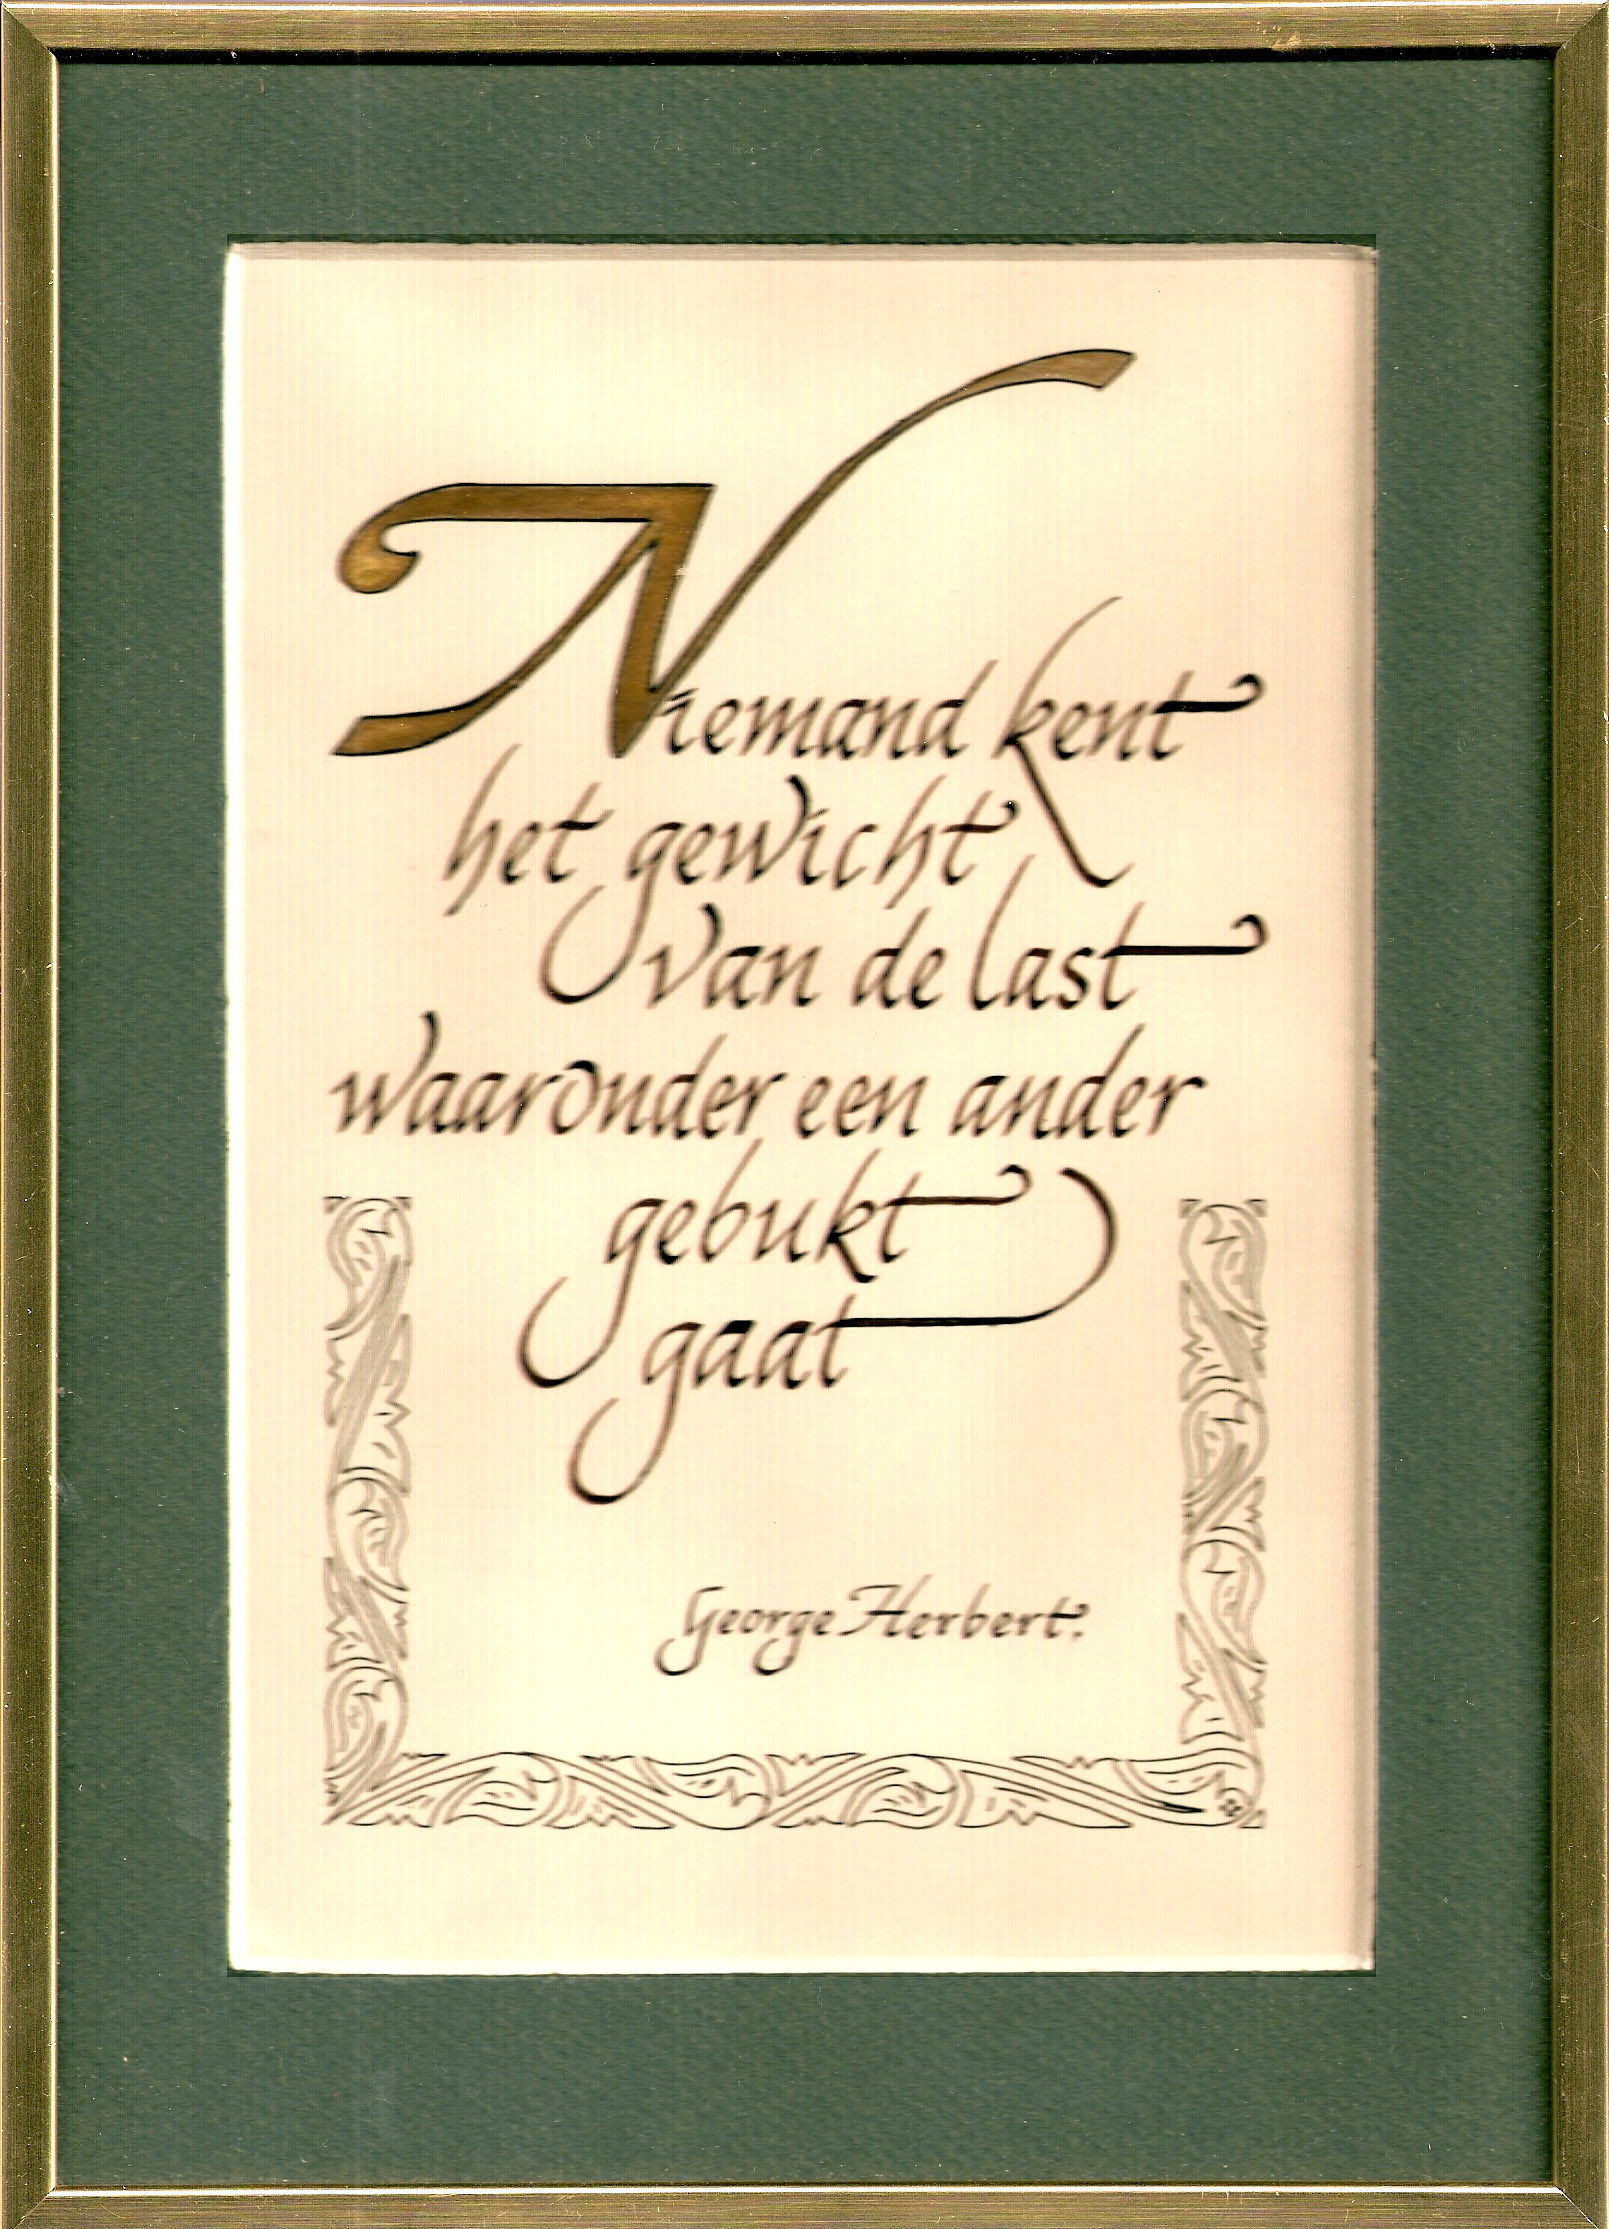 Niemand kent
het gewicht
van de last
waaronder een ander
gebukt
gaat
George Herbert.